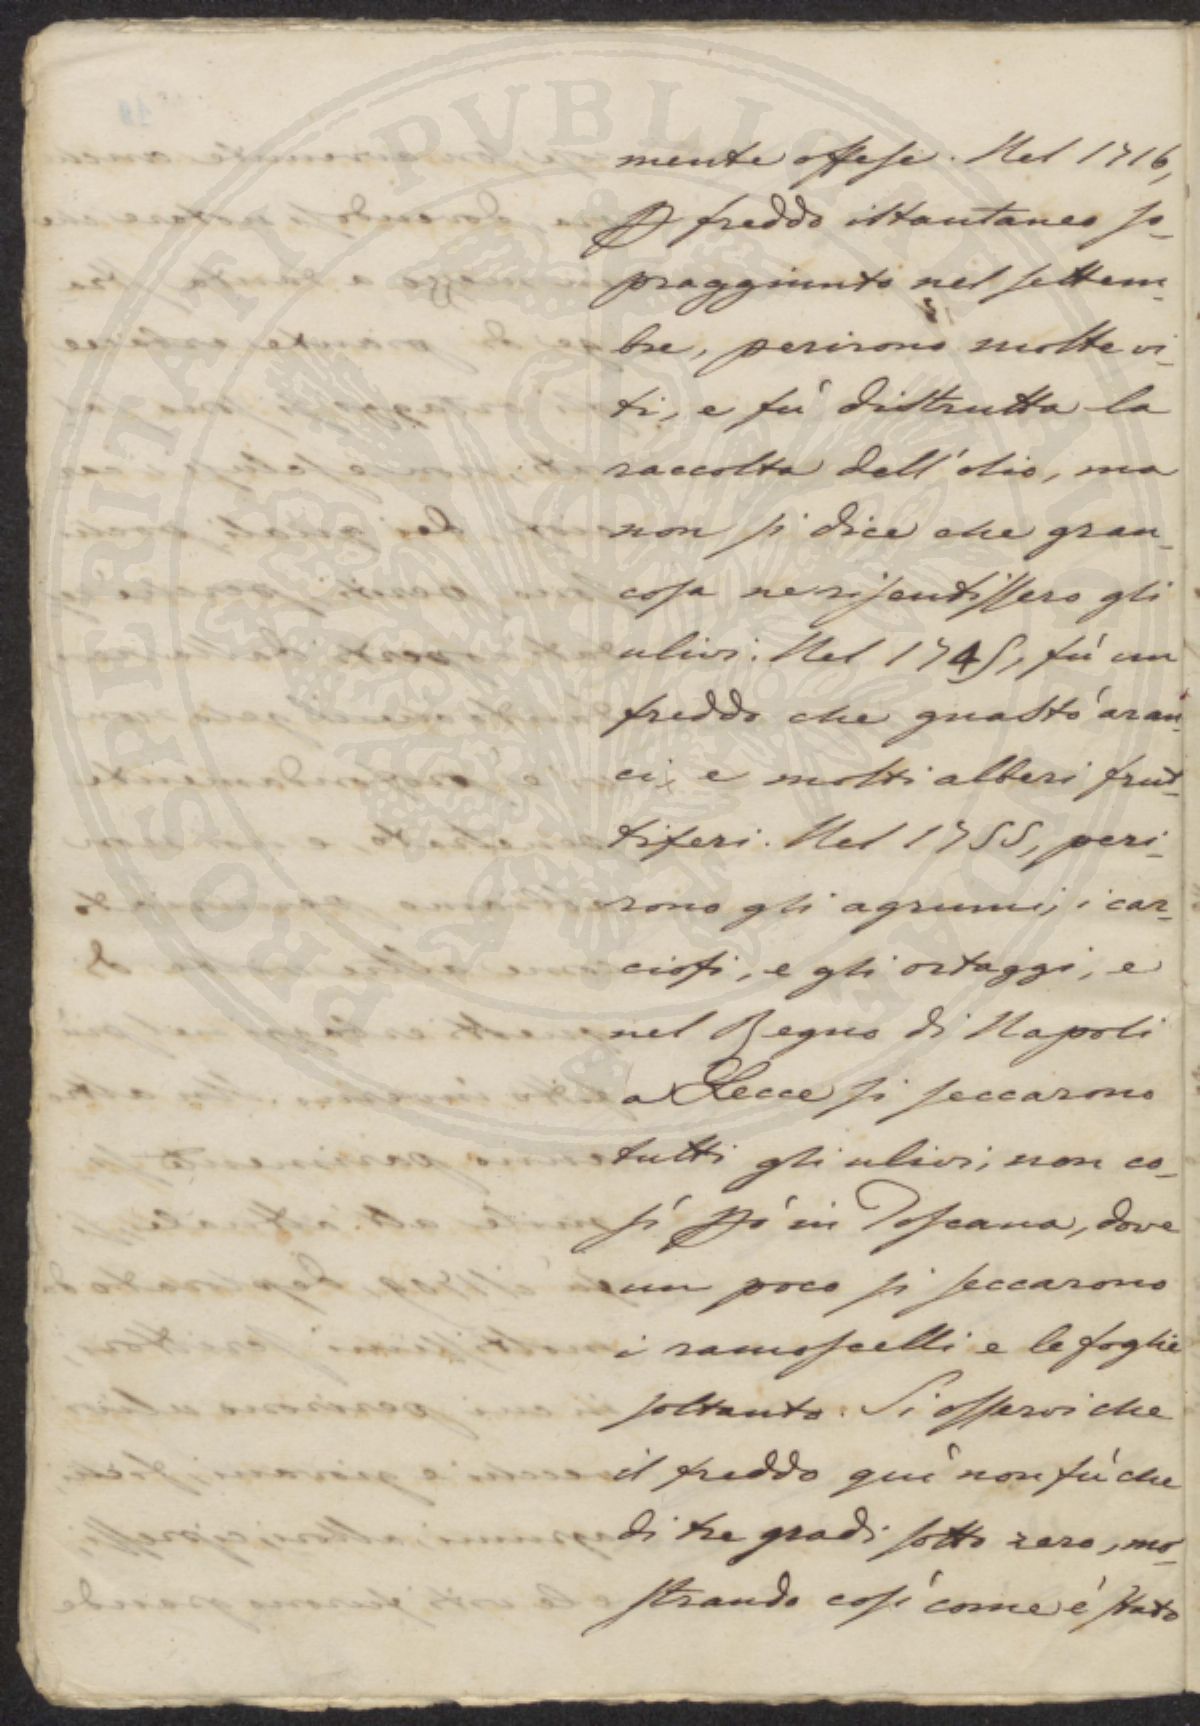 mente offese. Nel 1716,
p freddo istantaneo so-
praggiunto nel settem-
bre, perirono molte vi-
ti, e fù distrutta la
raccolta dell'olio, ma
non si dice che gran
cosa ne risentissero gli
ulivi. Nel 1745, fù un
freddo che guastò aran
ci, e molti alberi frut-
tiferi. Nel 1755, peri-
rono gli agrumi, i car-
ciofi, e gli ortaggi, e
nel Regno di Napoli
a Lecce si seccarono
tutti gli ulivi, non co-
sí pó in Toscana, dove
un poco si seccarono
i ramoscelli e le foglie
soltanto. Si osservi che
il freddo quí non fù che
di tre gradi sotto zero, mo-
strando cosí come é stato
PROSPERITATI PVBLICAE AVGENDAE